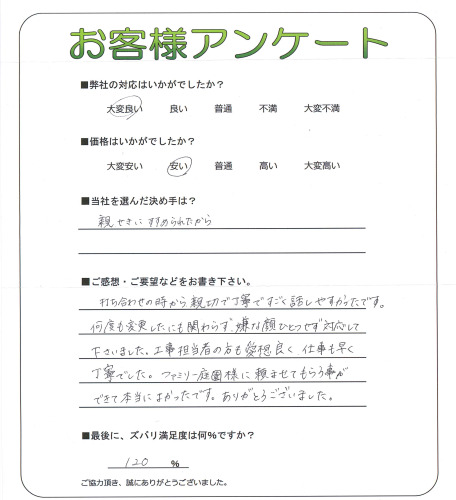 お客様アンケート
■弊社の対応はいかがでしたか？
大変良い 良い 普通 不満 大変不満
■価格はいかがでしたか？
大変安い 安い 普通 高い 大変高い
■当社を選んだ決め手は？
親せきにすすめられたから
■ご感想・ご要望などをお書き下さい。
打ち合わせの時から親切で丁寧ですごく話しやすかったです。
何度も変更したにも関わらず、嫌な顔ひとつせず対応して
下さいました。工事担当者の方も愛想良く仕事も早く
丁寧でした。ファミリー庭園様に頼ませてもらう事が
できて本当によかったです。ありがとうございました。
■最後に、ズバリ満足度は何％ですか？
120 ％
ご協力頂き、誠にありがとうございました。